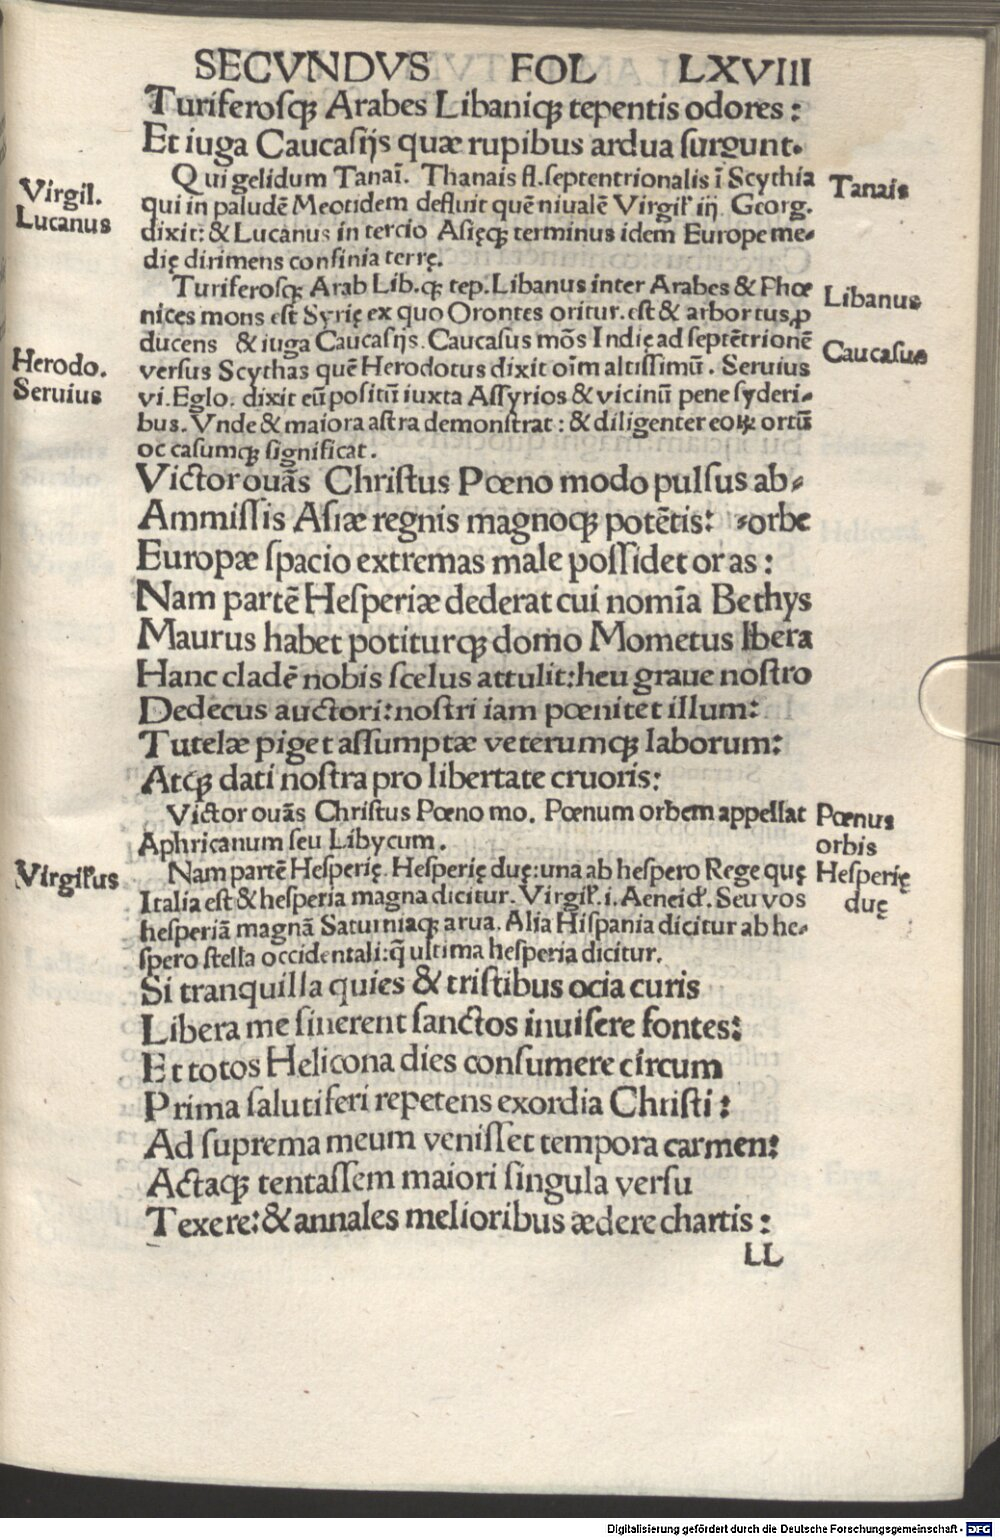 SECVNDVS FOL LXVIII
Turiferosq; Arabes Libaniq; tepentis odores:
Et iuga Caucasijs quæ rupibus ardua surgunt.
Qui gelidum Tanaī. Thanais fl. septentrionalis ī Scythia
Tanais
Virgil.
qui in paludē Meotidem defluit quē niualē Virgiľ iij Georg.
Lucanus
dixit: & Lucanus in tercio Asięq; terminus idem Europe me-
dię dirimens confinia terrę.
Turiferosq; Arab Lib.q; tep. Libanus inter Arabes & Phœ
Libanus
nices mons est Syrię ex quo Orontes oritur. est & arbor tus ꝓ
ducens & iuga Caucasijs. Caucasus mōs Indię ad septētrionē
Caucasus
Herodo.
versus Scythas quē Herodotus dixit oīm altissimū. Seruius
Seruius
vi. Eglo. dixit eū positū iuxta Assyrios & vicinū pene syderi-
bus. Vnde & maiora astra demonstrat: & diligenter eoꝝ ortū
oc casumq; significat.
Victor ouās Christus Pœno modo pulsus ab-
Ammissis Asiæ regnis magnoq; potētis: -orbe
Europæ spacio extremas male possidet oras:
Nam partē Hesperiæ dederat cui nomīa Bethys
Maurus habet potiturq; domo Mometus Ibera
Hanc cladē nobis scelus attulit: heu graue nostro
Dedecus auctori: nostri iam pœnitet illum:
Tutelæ piget assumptæ veterumq; laborum:
Atq; dati nostra pro libertate cruoris:
Victor ouās Christus Pœno mo. Pœnum orbem appellat
Pœnus
Aphricanum seu Libycum.
orbis
Nam partē Hesperię. Hesperię duę: una ab hespero Rege quę
Hesperię
Virgiľus
Italia est & hesperia magna dicitur. Virgiľ. i. Aeneiď. Seu vos
duę
hesperiā magnā Saturniaq; arua. Alia Hispania dicitur ab he-
spero stella occidentali: q̄ ultima hesperia dicitur.
Si tranquilla quies & tristibus ocia curis
Libera me sinerent sanctos inuisere fontes:
Et totos Helicona dies consumere circum
Prima salutiferi repetens exordia Christi:
Ad suprema meum venisset tempora carmen:
Actaq; tentassem maiori singula versu
Texere: & annales melioribus ædere chartis:
LL
Digitalisierung gefördert durch die Deutsche Forschungsgemeinschaft - DFG